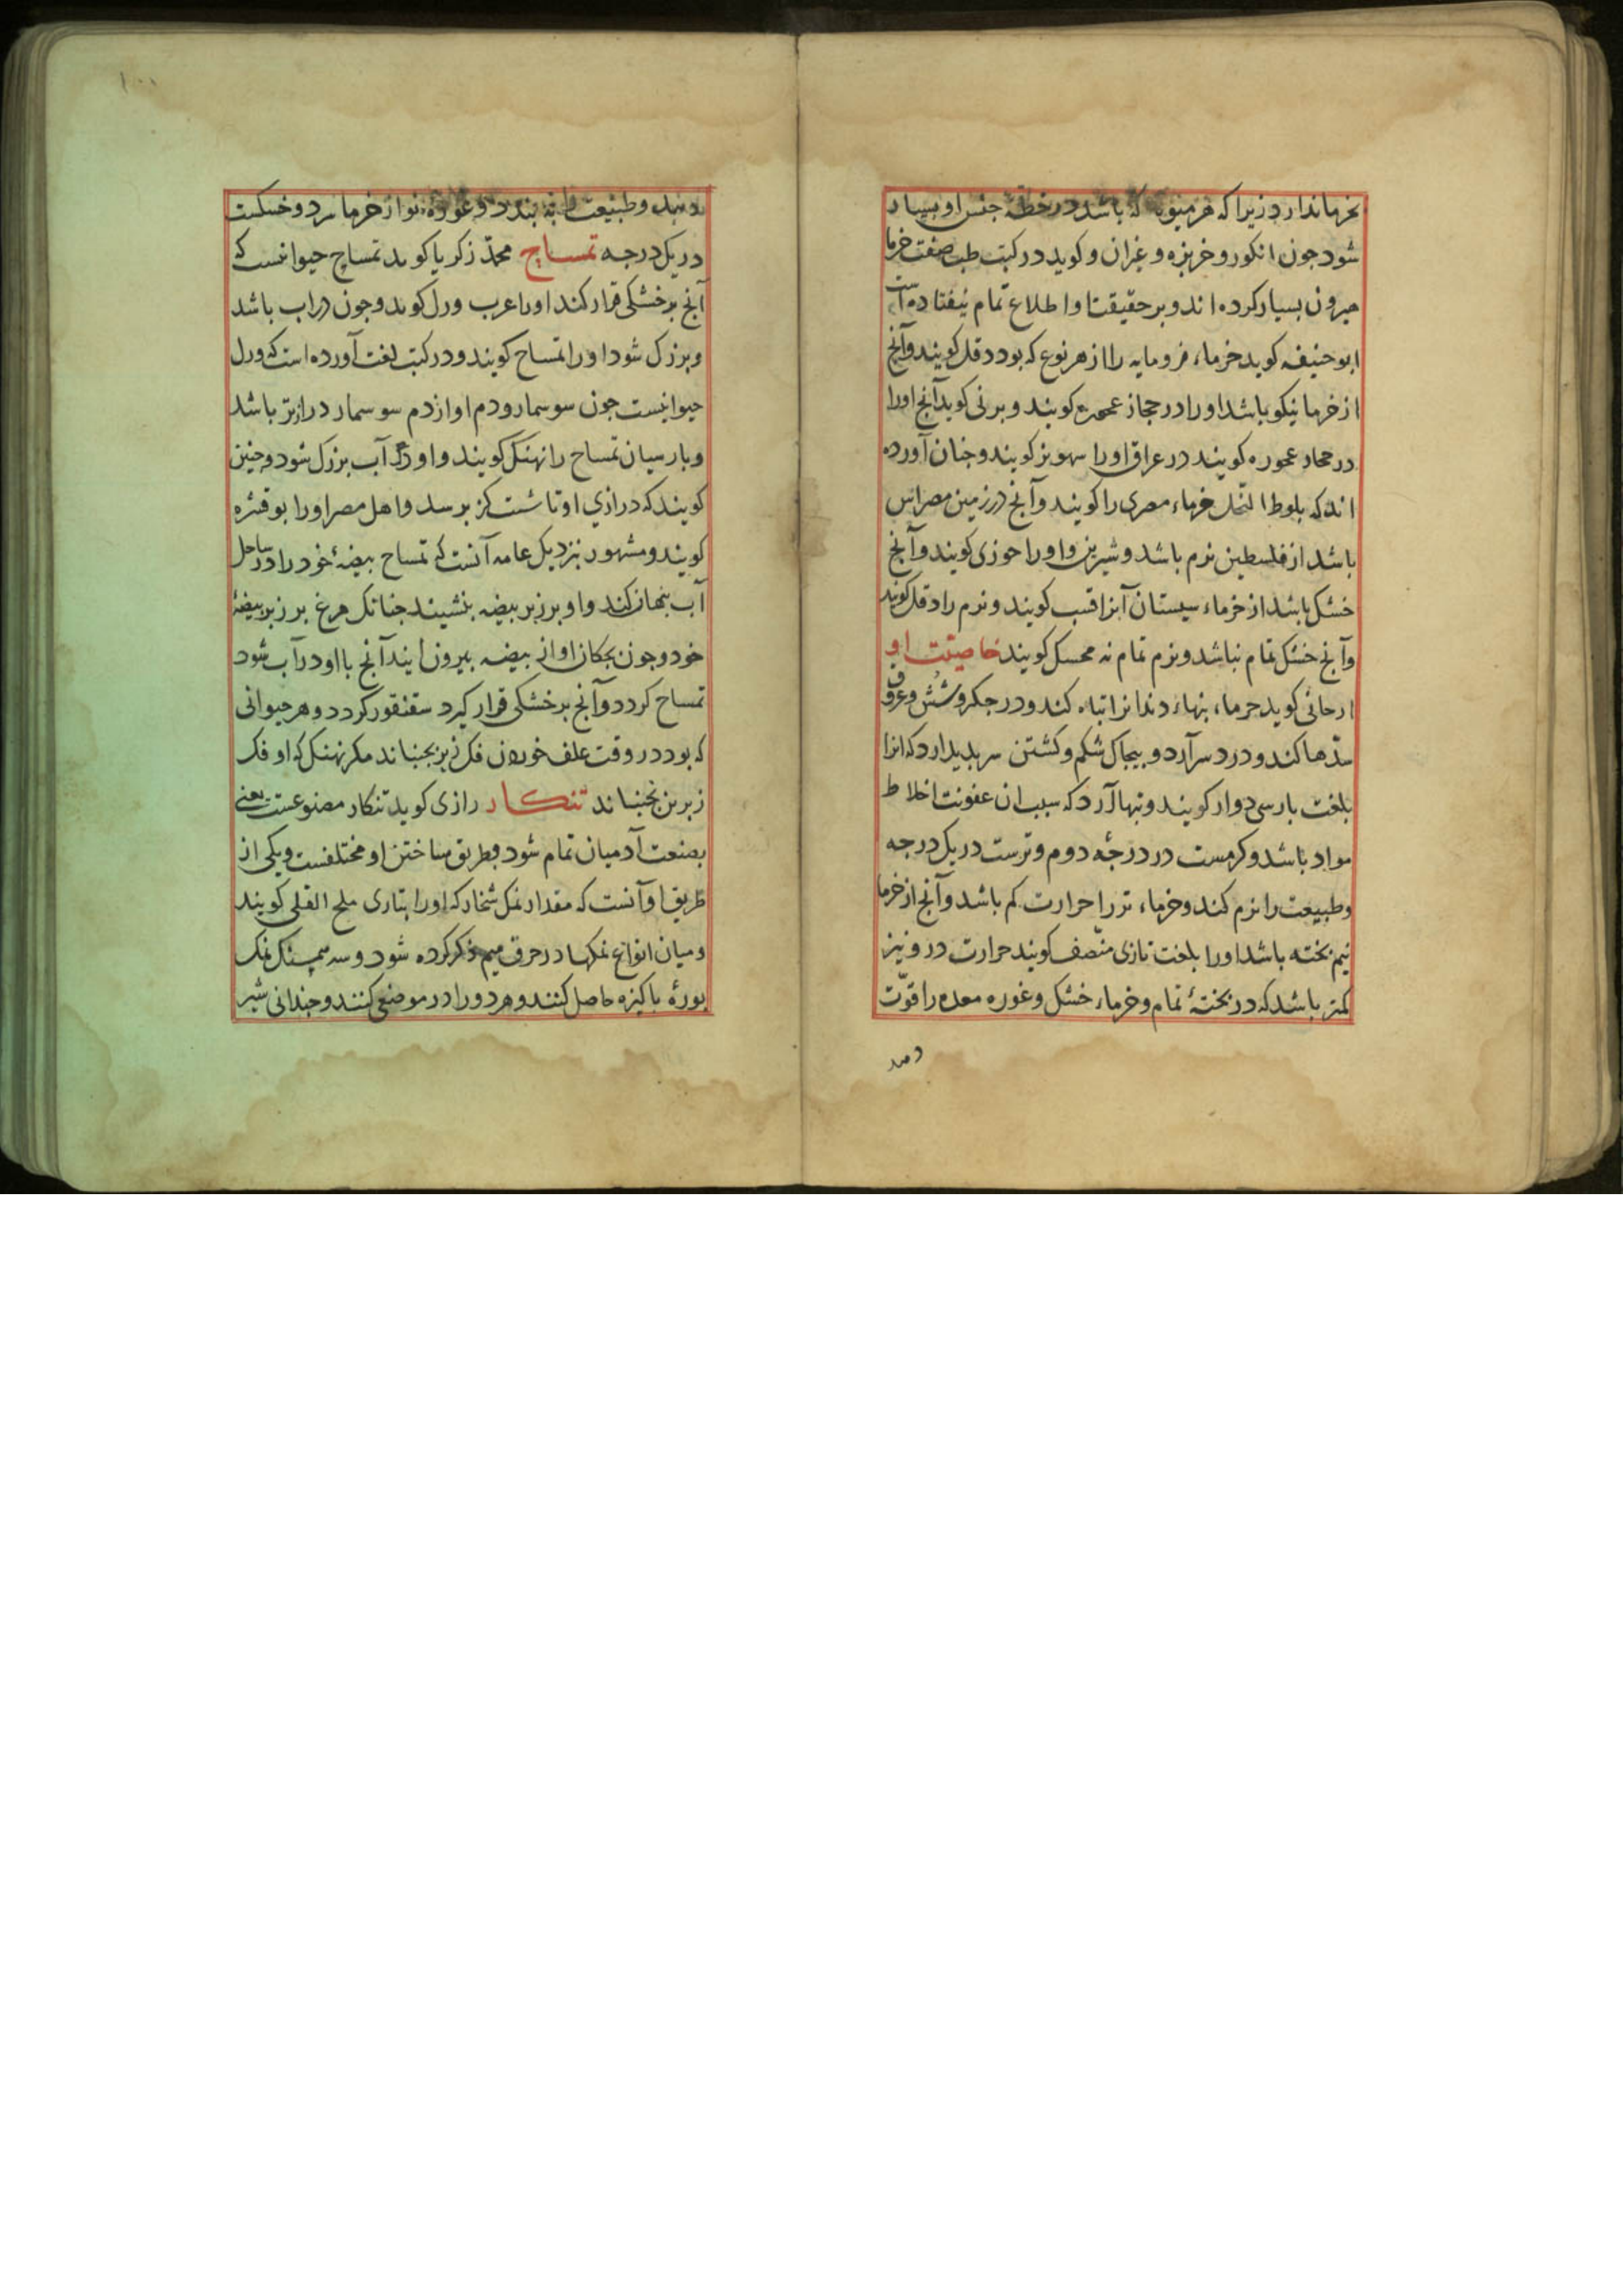 بخرما ندارد زیرا که هر میوه که باشد در خطه جنس او بسیار
شود جون انکور و خربزه و غیران و کوید در کتب طب صفت خرما
هیرون بسیار کرده اند و بر حقیقتا و اطلاع تمام نیفتاده است
ابو حنیفه کوید خرماء فرومایه را از هر نوع که بود دقل کویند وآنج
از خرما نیکو باشد او را در حجاز عجوه کویند و برنی کوید آنج اورا
در حجاز عجوره کویند در عراق اورا سهریز کویند و جنان آورده
اند که بلوط النّخل خرماء مصری را کویند وآنج در زمین مصر اس
باشد از فلسطین نرم باشد و شیرین واورا حوزی کویند وآنج
خشک باشد از خرماء سیستان آنرا قسب کویند و نرم را دقل کویند
وآنج خشک تمام نباشد و نرم تمام نه محسل کویند خاصیّت او
ارجانی کوید خرماء بنهاء دندانرا تباه کند و در جکر و شُش و عروق
سدّها کند و درد سر آرد و بیجاک شکم و کشتن سر بدید ارد که انرا
بلغت بارسی دوار کویند و تبها آرد که سبب ان عفونت اخلاط
مواد باشد و کرمست در درجهٔ دوم و ترست در یک درجه
وطبیعت را نرم کند و خرماء تر را حرارت کم باشد وآنج از خرما
نیم بخته باشد اورا بلغت تازی منّصف کویند حرارت درو نیز
کمتر باشد که در بختهٔ تمام و خرماء خشک و غوره معده را قوّت
دهد
دهد و طبیعت را به بندد و غورهٔ نو از خرما سرد و خشکست
در یک درجه تمساح محمّد زکریا کوید تمساح حیوانیست که
آنج بر خشکی قرار کند اورا عرب ورل کوید و جون در اب باشد
و بزرک شود او را تمساح کویند و در کتب لغت آورده است که ورل
حیوانیست جون سوسمار و دم او از دم سوسمار درازتر باشد
و بارسیان تمساح را نهنک کویند و او در آب بزرک شود و جنین
کویند که درازي او تا شست کز برسد و اهل مصر اورا بوقثره
کویند و مشهور نزدیک عامه آنست که تمساح بیضهٔ خود را در ساحل
آب بنهان کند و او بر زبر بیضه بنشیند جنانک مرغ بر زبر بیضهٔ
خود و جون بجکان او از بیضه بیرون ایند آنج با او در آب شود
تمساح کردد وآنج بر خشکی قرار کیرد سقنقور کردد و هر حیوانی
که بود در وقت علف خوردن فک زیر بجنباند مکر نهنک که او فک
زبرین بجنباند تنکار رازی کوید تنکار مصنوعست یعنی
بصنعت آدمیان تمام شود و طریق ساختن او مختلفست و یکی از
طریق او آنست که مقدار نمک شخار که اورا بتازی ملح القلی کویند
و میان انواع نمکها در حرف میم ذکر کرده شود و سه هم سنک نمک
بورهٔ باکیزه حاصل کنند و هر دو را در موضعی کنند و جندانی شیر